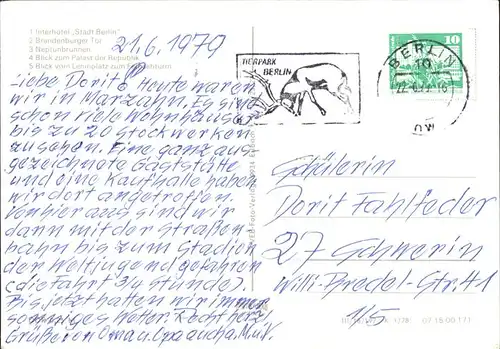 1 Interhotel „Stadt Berlin"
2 Brandenburger Tor
3 Neptunbrunnen
4 Blick zum Palast der Republik
5 Blick vom Leninplatz zum Fernsehturm
21.6.1979
Liebe Dorit! Heute waren
wir in Marzahn. Es sind
schon viele Wohnhäuser
bis zu 20 Stockwerken
zusehen. Eine ganz aus-
gezeichnete Gaststätte
und eine Kaufhalle haben
wir dort angetroffen.
Von hier aus sind wir
dann mit der Straßen-
bahn bis zum Stadion
der Weltjugend gefahren
(die Fahrt 3/4 Stunde).
Bis jetzt hatten wir immer
sonniges Wetter. Recht herzl.
Grüße von Oma u. Opa auch a. M. u. V.
TIERPARK
BERLIN
BERLIN
10
Schülerin
Dorit Fahlfeder
27 Schwerin
Willi-Bredel-Str. 41
1/5
07 15 00 171